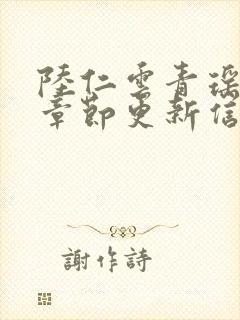 陸仁雲青瑶
章節更新信
謝作詩